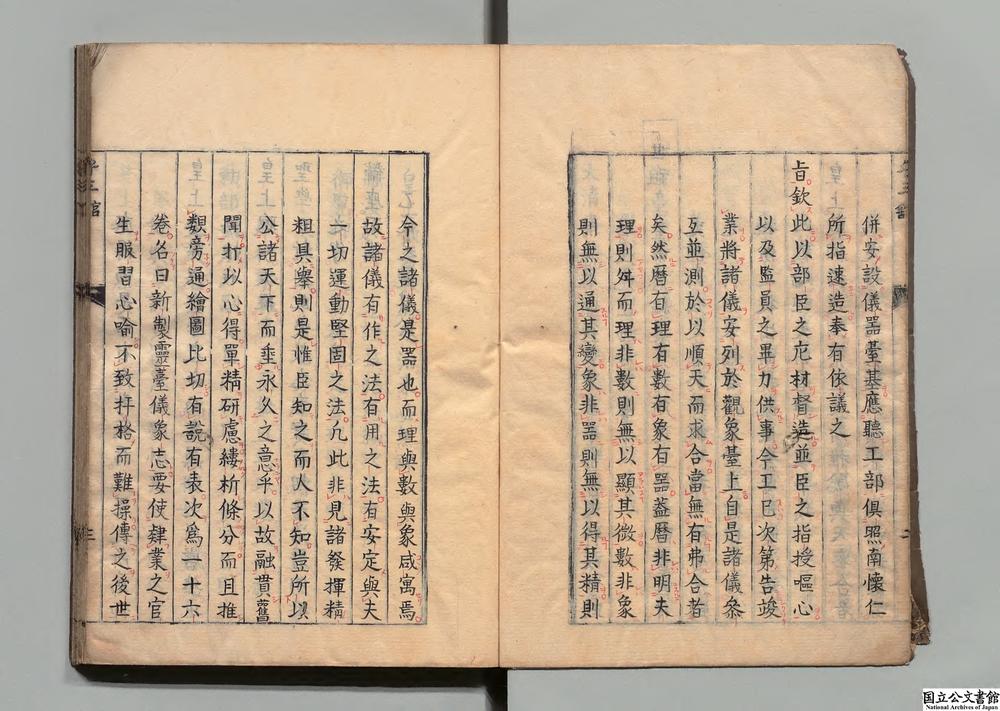 併安設儀器臺基應聽工部俱照南懷仁
所指速造奉有依議之
旨欽此以部臣之庀材督造並臣之指授嘔心
以及監員之畢力供事今工已次第告竣
業將諸儀安列於觀象臺上自是諸儀叅
互並測於以順天而求合當無有弗合者
矣然曆有理有數有象有器蓋曆非明夫
理則舛而理非數則無以顯其微數非象
則無以通其變象非器則無以得其精則
今之諸儀是器也而理與數與象咸寓焉
故諸儀有作之法有用之法有安定與夫
一切運動堅固之法凢此非見諸發揮精
粗具舉則是惟臣知之而人不知豈所以
公諸天下而垂永久之意乎以故融貫舊
聞打以心得單精研慮縷析條分而且推
覩旁通繪圖比切有說有表次爲一十六
卷名曰新製靈臺儀象志要使肄業之官
生服習心喻不致扞格而難操傳之後世
二
三
国立公文書館
National Archives of Japan